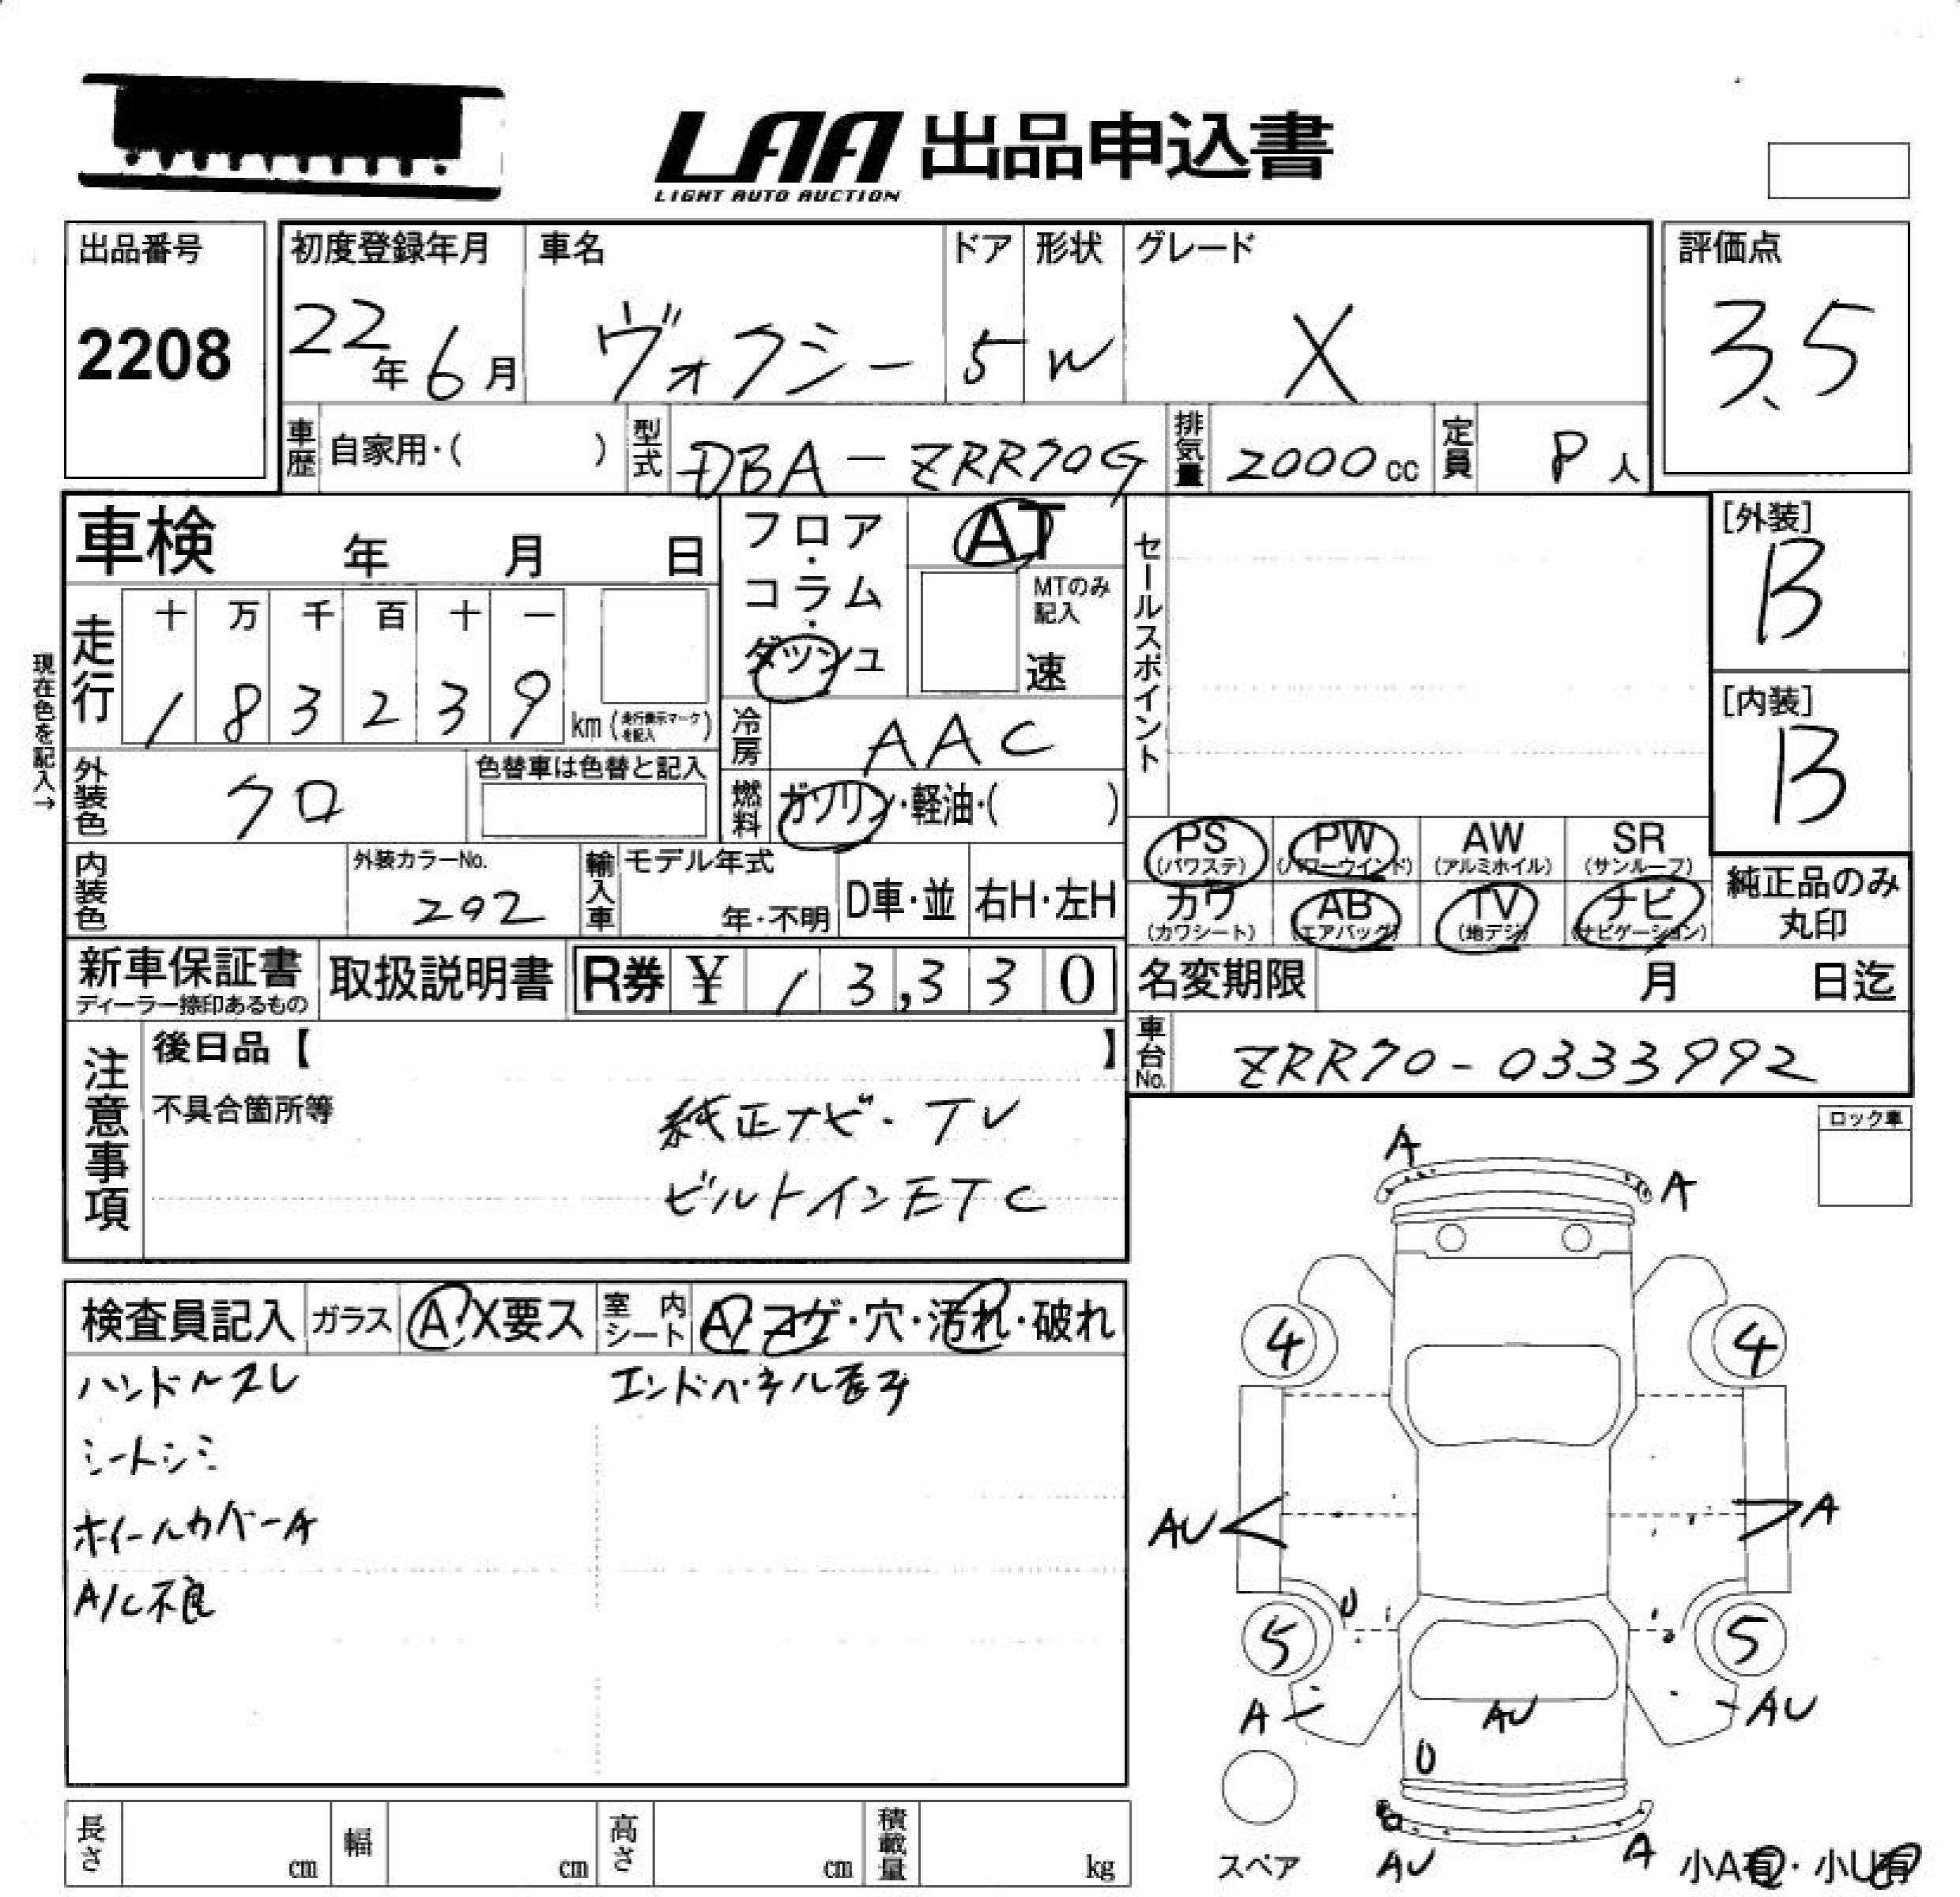 LAA 出品申込書
LIGHT AUTO AUCTION
出品番号
2208
初度登録年月
22年6月
車名
ヴォクシー
ドア
5
形状
W
グレード
X
評価点
3.5
車歴
自家用・( )
型式
DBA-ZRR70G
排気量
2000cc
定員
8人
車検 年 月 日
フロア・コラム・ダッシュ
AT
MTのみ記入
速
セールスポイント
[外装]
B
[内装]
B
現在色を記入→
走行
十 万 千 百 十 一
1 8 3 2 3 9
km(走行表示マークを記入)
冷房
AAC
外装色
クロ
色替車は色替と記入
燃料
ガソリン・軽油・( )
PS
(パワステ)
PW
(パワーウインド)
AW
(アルミホイル)
SR
(サンルーフ)
カワ
(カワシート)
AB
(エアバッグ)
TV
(地デジ)
ナビ
(ナビゲーション)
純正品のみ
丸印
内装色
外装カラーNo.
292
輸入車
モデル年式
年・不明
D車・並
右H・左H
新車保証書
ディーラー捺印あるもの
取扱説明書
R券 ¥ 13,330
名変期限 月 日迄
車台No.
ZRR70-0333992
注意事項
後日品【 】
不具合箇所等
純正ナビ・TV
ビルトインETC
ロック車
検査員記入
ガラス
A X要ス
室内シート
A・コゲ・穴・汚れ・破れ
ハンドルスレ
エンドパネル歪み
シートシミ
ホイールカバーA
A/C不良
A
A
4
4
AU
A
U
5
5
A
AU
AU
U
AU
A
スペア
小A有・小U有
長さ cm
幅 cm
高さ cm
積載量 kg